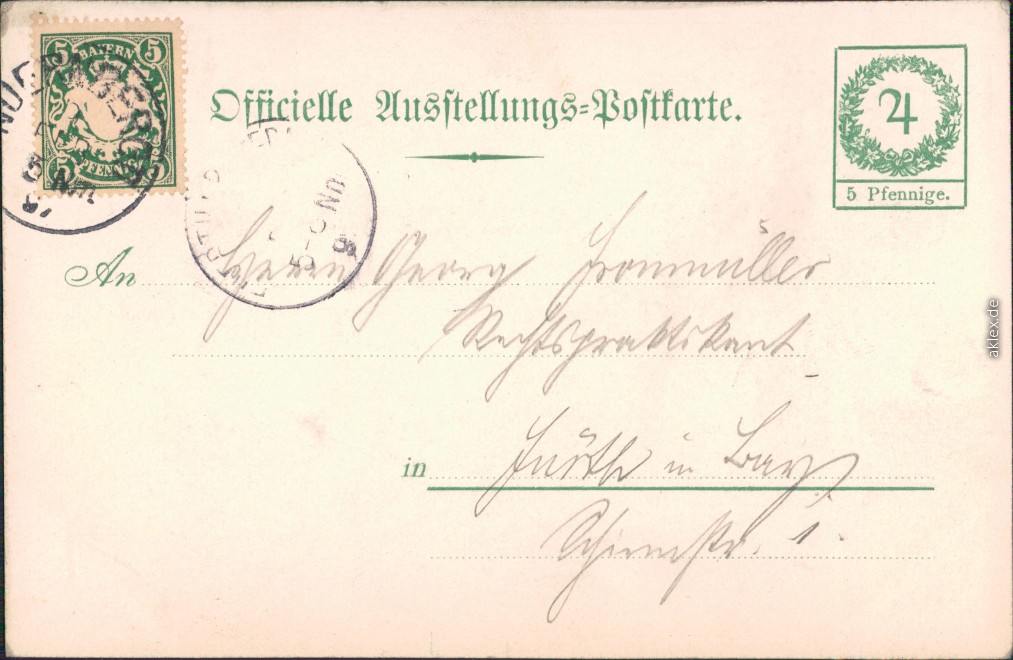 5 BAYERN 5
5 PFENNIG 5
Officielle Ausstellungs=Postkarte.
24
5 Pfennige.
5-6 NM
An Herrn Georg Fronmüller
Rechtspraktikant
in Fürth in Bay.
Schirmstr. 1.
aklex.de